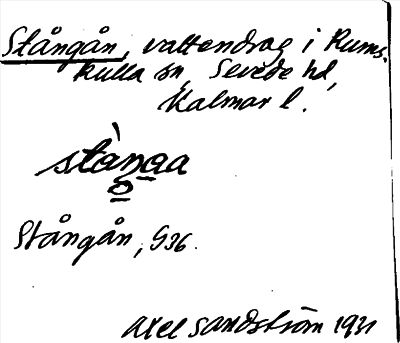 Stångån, vattendrag i Rums-
kulla sn, Sevede hd,
Kalmar l.
stàn̥ga
Stångån, G36.
Axel Sandström 1931